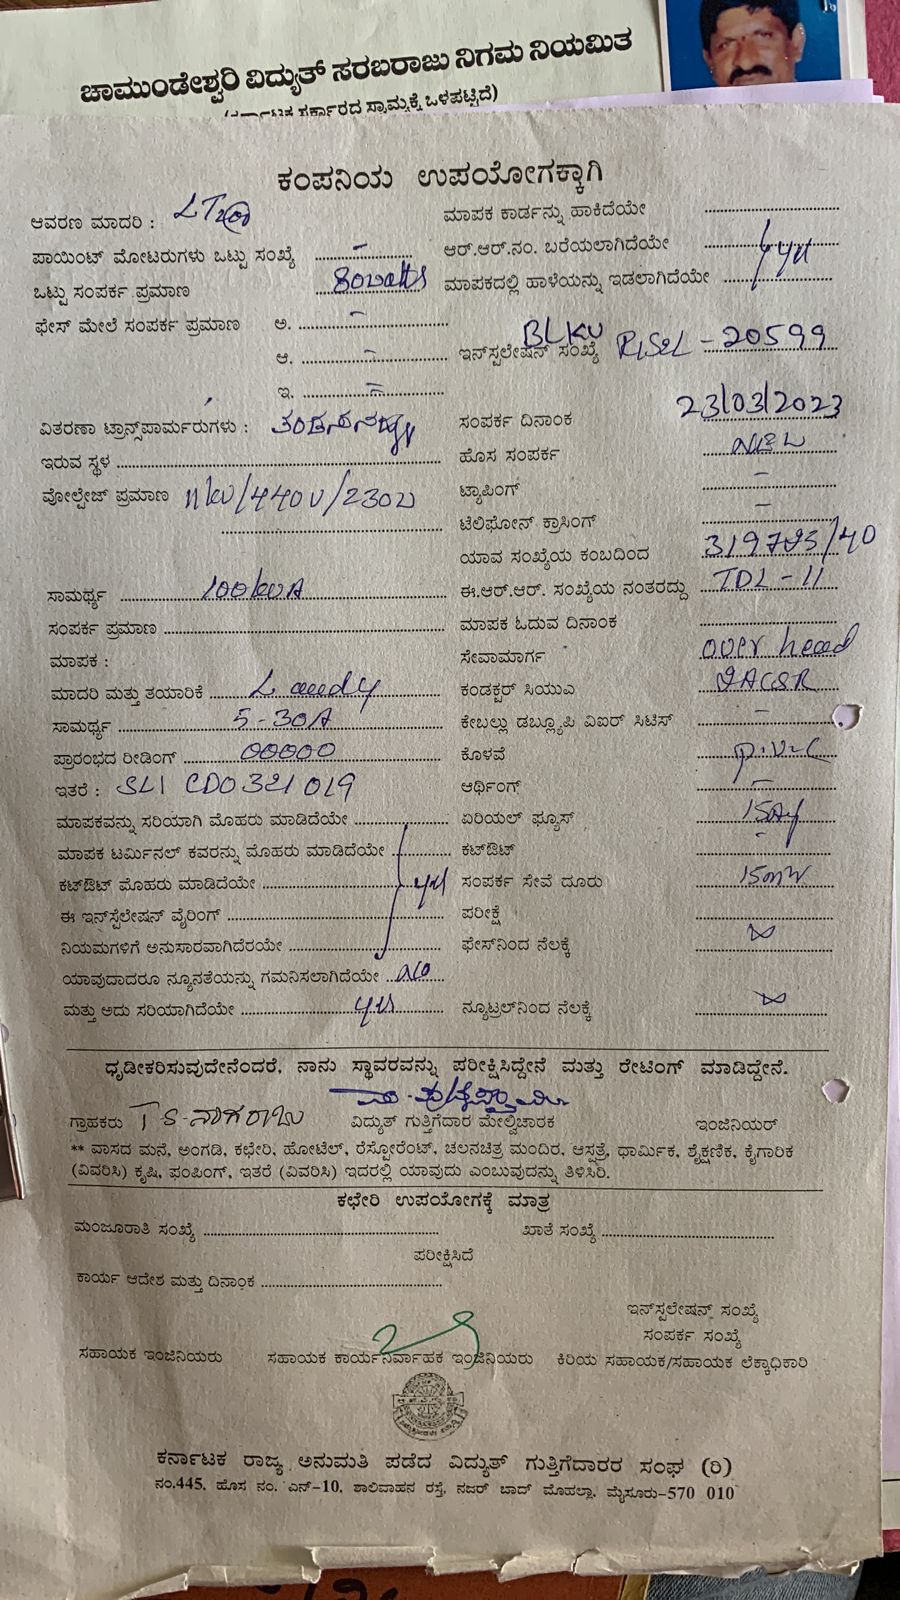 ಚಾಮುಂಡೇಶ್ವರಿ ವಿದ್ಯುತ್ ಸರಬರಾಜು ನಿಗಮ ನಿಯಮಿತ
(ಕರ್ನಾಟಕ ಸರ್ಕಾರದ ಸ್ವಾಮ್ಯಕ್ಕೆ ಒಳಪಟ್ಟಿದೆ)
ಕಂಪನಿಯ ಉಪಯೋಗಕ್ಕಾಗಿ
ಆವರಣ ಮಾದರಿ :
ಪಾಯಿಂಟ್ ಮೋಟರುಗಳು ಒಟ್ಟು ಸಂಖ್ಯೆ –
ಒಟ್ಟು ಸಂಪರ್ಕ ಪ್ರಮಾಣ 80watts
ಫೇಸ್ ಮೇಲೆ ಸಂಪರ್ಕ ಪ್ರಮಾಣ ಅ. –
ಆ. –
ಇ.
ವಿತರಣಾ ಟ್ರಾನ್ಸ್‌ಫಾರ್ಮರುಗಳು :
ಇರುವ ಸ್ಥಳ
ವೋಲ್ಟೇಜ್ ಪ್ರಮಾಣ 11kv/440v/230v
ಸಾಮರ್ಥ್ಯ 100kVA
ಸಂಪರ್ಕ ಪ್ರಮಾಣ
ಮಾಪಕ :
ಮಾದರಿ ಮತ್ತು ತಯಾರಿಕೆ
ಸಾಮರ್ಥ್ಯ 5-30A
ಪ್ರಾರಂಭದ ರೀಡಿಂಗ್ 00000
ಇತರೆ :
ಮಾಪಕವನ್ನು ಸರಿಯಾಗಿ ಮೊಹರು ಮಾಡಿದೆಯೇ
ಮಾಪಕ ಟರ್ಮಿನಲ್ ಕವರನ್ನು ಮೊಹರು ಮಾಡಿದೆಯೇ
ಕಟ್‌ಔಟ್ ಮೊಹರು ಮಾಡಿದೆಯೇ yes
ಈ ಇನ್‌ಸ್ಟಲೇಷನ್ ವೈರಿಂಗ್
ನಿಯಮಗಳಿಗೆ ಅನುಸಾರವಾಗಿದೆರೆಯೇ
ಯಾವುದಾದರೂ ನ್ಯೂನತೆಯನ್ನು ಗಮನಿಸಲಾಗಿದೆಯೇ No
ಮತ್ತು ಅದು ಸರಿಯಾಗಿದೆಯೇ yes
ಮಾಪಕ ಕಾರ್ಡನ್ನು ಹಾಕಿದೆಯೇ
ಆರ್.ಆರ್.ನಂ. ಬರೆಯಲಾಗಿದೆಯೇ yes
ಮಾಪಕದಲ್ಲಿ ಹಾಳೆಯನ್ನು ಇಡಲಾಗಿದೆಯೇ
ಇನ್‌ಸ್ಟಲೇಷನ್ ಸಂಖ್ಯೆ -20599
ಸಂಪರ್ಕ ದಿನಾಂಕ 23/03/2023
ಹೊಸ ಸಂಪರ್ಕ
ಟ್ಯಾಪಿಂಗ್ –
ಟೆಲಿಫೋನ್ ಕ್ರಾಸಿಂಗ್ –
ಯಾವ ಸಂಖ್ಯೆಯ ಕಂಬದಿಂದ
ಈ.ಆರ್.ಆರ್. ಸಂಖ್ಯೆಯ ನಂತರದ್ದು TDL-11
ಮಾಪಕ ಓದುವ ದಿನಾಂಕ
ಸೇವಾಮಾರ್ಗ over head
ಕಂಡಕ್ಟರ್ ಸಿಯುಎ
ಕೇಬಲ್ಲು ಡಬ್ಲ್ಯೂಪಿ ವಿಐಆರ್ ಸಿಟಿಸ್ –
ಕೊಳವೆ P.V.C
ಅರ್ಥಿಂಗ್ –
ಏರಿಯಲ್ ಫ್ಯೂಸ್
ಕಟ್‌ಔಟ್ –
ಸಂಪರ್ಕ ಸೇವೆ ದೂರು
ಪರೀಕ್ಷೆ
ಫೇಸ್‌ನಿಂದ ನೆಲಕ್ಕೆ ∞
ನ್ಯೂಟ್ರಲ್‌ನಿಂದ ನೆಲಕ್ಕೆ ∞
ಧೃಡೀಕರಿಸುವುದೇನೆಂದರೆ, ನಾನು ಸ್ಥಾವರವನ್ನು ಪರೀಕ್ಷಿಸಿದ್ದೇನೆ ಮತ್ತು ರೇಟಿಂಗ್ ಮಾಡಿದ್ದೇನೆ.
ಗ್ರಾಹಕರು T S-ನಾಗರಾಜು ವಿದ್ಯುತ್ ಗುತ್ತಿಗೆದಾರ ಮೇಲ್ವಿಚಾರಕ ಇಂಜಿನಿಯರ್
** ವಾಸದ ಮನೆ, ಅಂಗಡಿ, ಕಛೇರಿ, ಹೋಟೆಲ್, ರೆಸ್ಟೋರೆಂಟ್, ಚಲನಚಿತ್ರ ಮಂದಿರ, ಆಸ್ಪತ್ರೆ, ಧಾರ್ಮಿಕ, ಶೈಕ್ಷಣಿಕ, ಕೈಗಾರಿಕೆ
(ವಿವರಿಸಿ) ಕೃಷಿ, ಫಂಪಿಂಗ್, ಇತರೆ (ವಿವರಿಸಿ) ಇದರಲ್ಲಿ ಯಾವುದು ಎಂಬುವುದನ್ನು ತಿಳಿಸಿರಿ.
ಕಛೇರಿ ಉಪಯೋಗಕ್ಕೆ ಮಾತ್ರ
ಮಂಜೂರಾತಿ ಸಂಖ್ಯೆ ಖಾತೆ ಸಂಖ್ಯೆ
ಪರೀಕ್ಷಿಸಿದೆ
ಕಾರ್ಯ ಆದೇಶ ಮತ್ತು ದಿನಾಂಕ
ಇನ್‌ಸ್ಟಲೇಷನ್ ಸಂಖ್ಯೆ
ಸಂಪರ್ಕ ಸಂಖ್ಯೆ
ಸಹಾಯಕ ಇಂಜಿನಿಯರು ಸಹಾಯಕ ಕಾರ್ಯನಿರ್ವಾಹಕ ಇಂಜಿನಿಯರು ಕಿರಿಯ ಸಹಾಯಕ/ಸಹಾಯಕ ಲೆಕ್ಕಾಧಿಕಾರಿ
ಕರ್ನಾಟಕ ರಾಜ್ಯ ಅನುಮತಿ ಪಡೆದ ವಿದ್ಯುತ್ ಗುತ್ತಿಗೆದಾರರ ಸಂಘ (ರಿ)
ನಂ.445, ಹೊಸ ನಂ. ಎನ್-10, ಶಾಲಿವಾಹನ ರಸ್ತೆ, ನಜರ್ ಬಾದ್ ಮೊಹಲ್ಲಾ, ಮೈಸೂರು-570 010